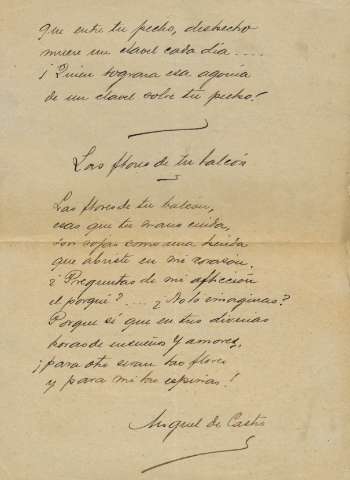 que entre tu pecho, deshecho
muere un clavel cada día....
¡Quien lograra esa agonía
de un clavel sobre tu pecho!
Las flores de tu balcón
Las flores de tu balcón,
esas que tu mano cuida,
son rojas como una herida
que abriste en mi corazón.
¿Preguntas de mi aflicción
el porqué?.... ¿No lo imaginas?
Porque sé que en tus divinas
horas de ensueños y amores,
¡para otro seran las flores
y para mi las espinas!
Miguel de Castro